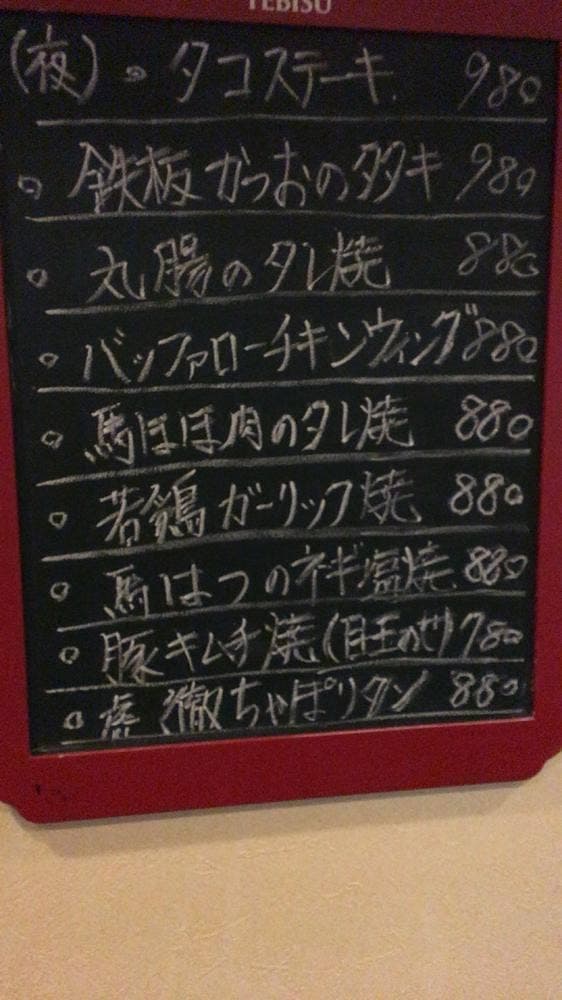 YEBISU
(夜)。タコステーキ. 980
。鉄板かつおのタタキ 980
。丸腸のタレ焼 880
。バッファローチキンウィング880
。馬ほほ肉のタレ焼 880
。若鶏ガーリック焼 880
。馬はつのネギ塩焼 880
。豚キムチ焼(目玉のせ)780
。虎徹ちゃぽリタン 880